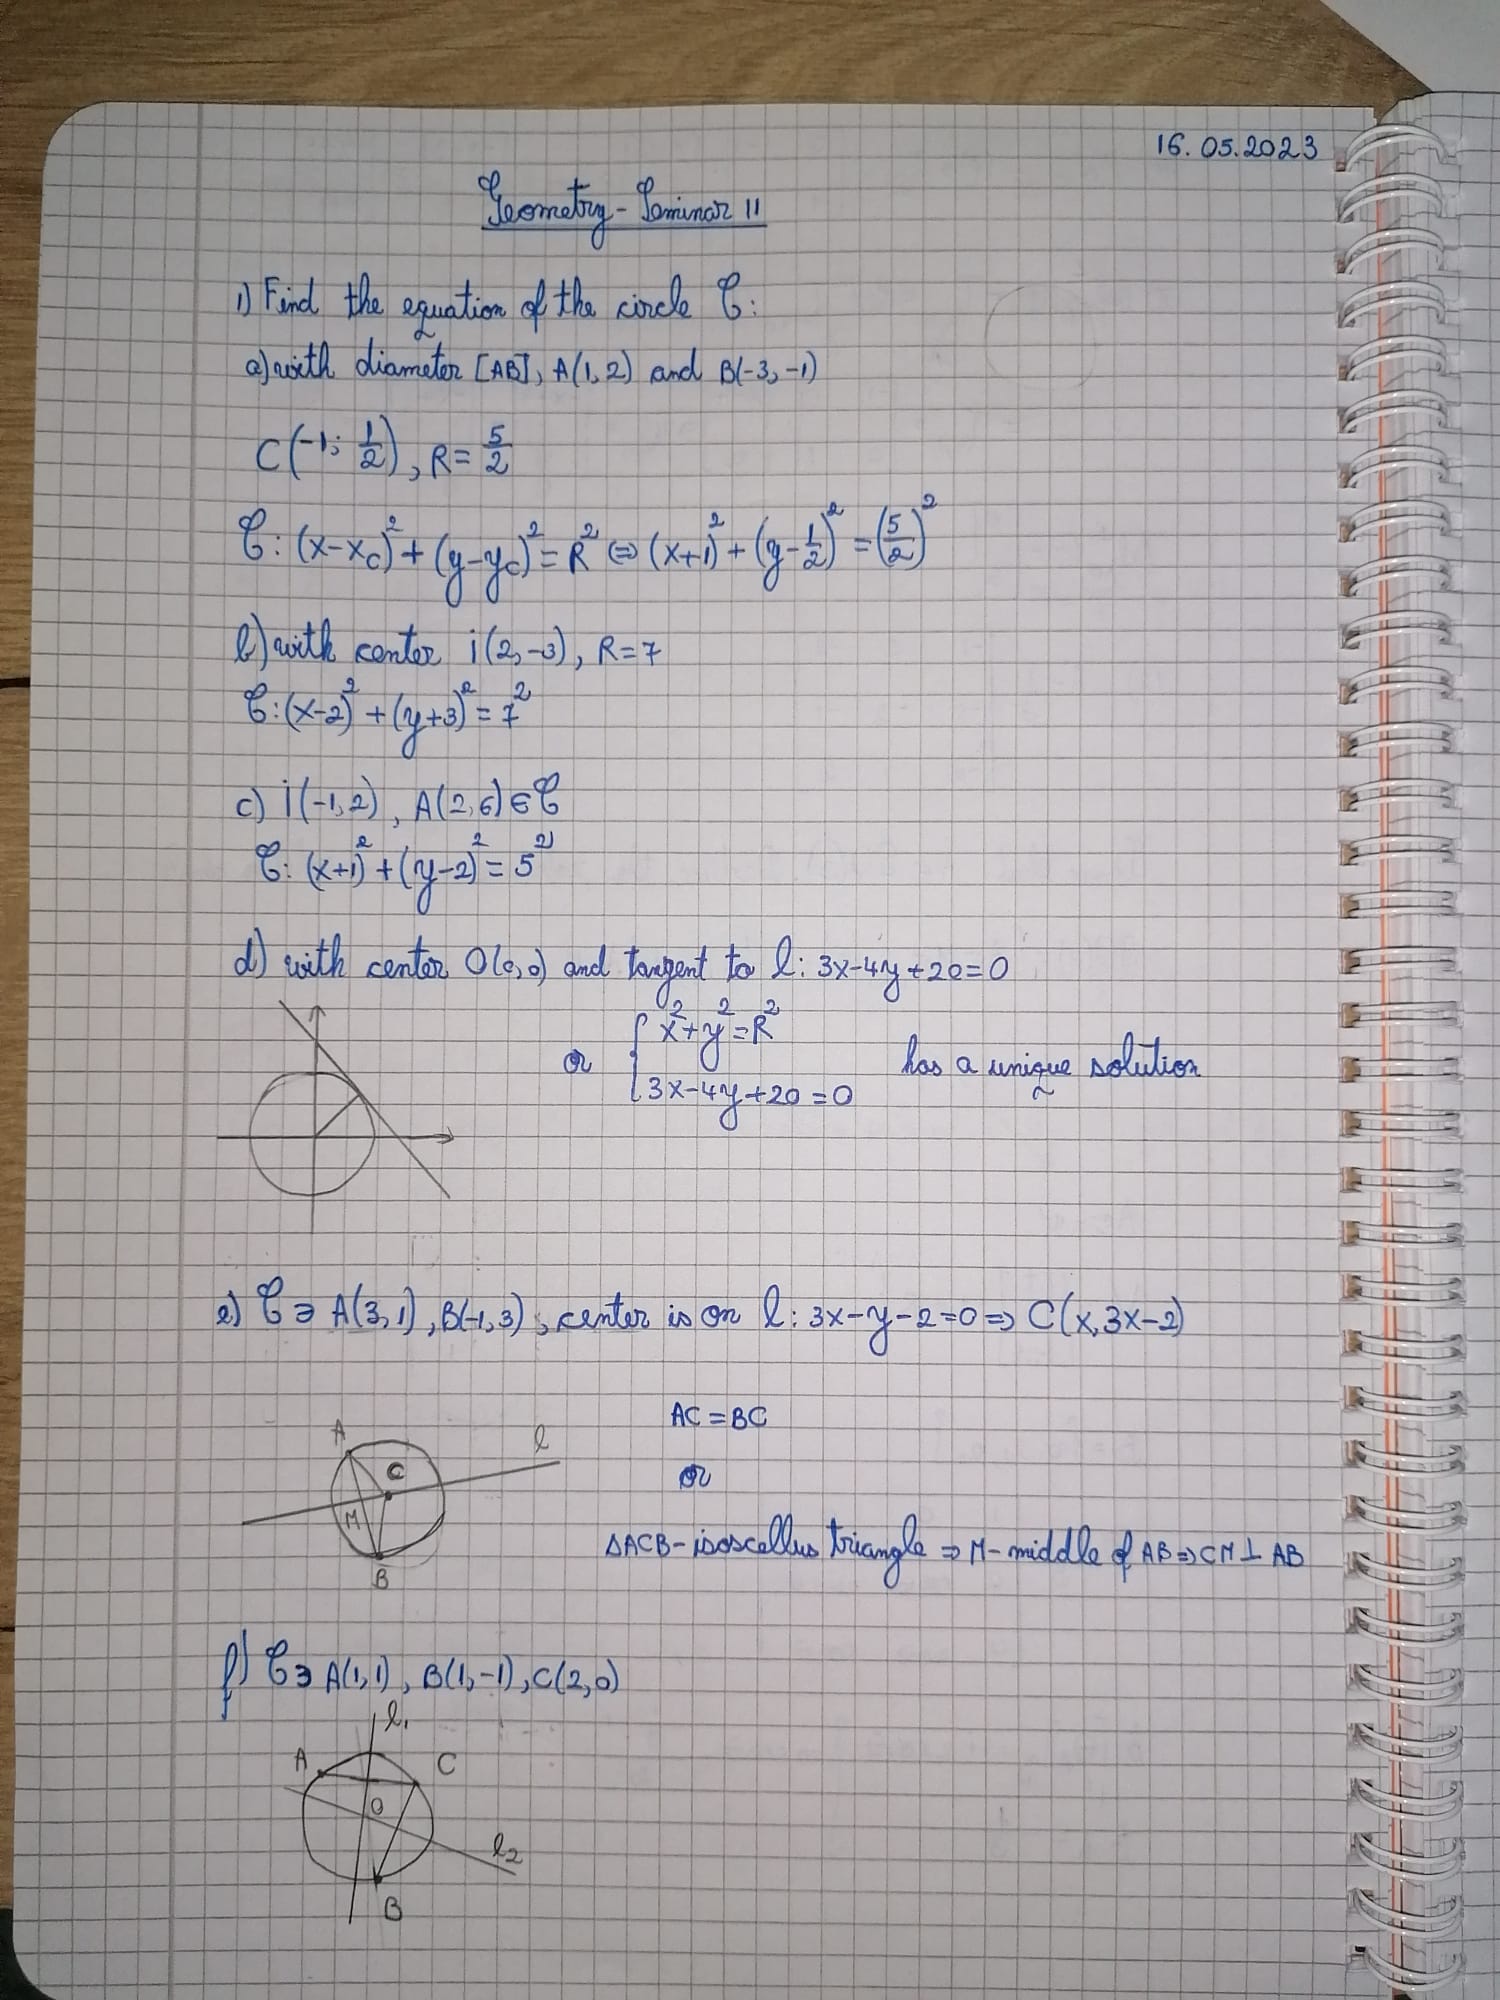 16.05.2023
Geometry - Seminar 11
1) Find the equation of the circle C:
a) with diameter [AB], A(1,2) and B(-3,-1)
C(-1; 1/2), R = 5/2
C: (x-x_C)² + (y-y_C)² = R² ⇔ (x+1)² + (y-1/2)² = (5/2)²
b) with center i(2,-3), R=7
C: (x-2)² + (y+3)² = 7²
c) i(-1,2), A(2,6) ∈ C
C: (x+1)² + (y-2)² = 5²
d) with center O(0,0) and tangent to l: 3x-4y+20=0
or { x²+y²=R²
3x-4y+20=0 has a unique solution
e) C ∋ A(3,1), B(-1,3), center is on l: 3x-y-2=0 ⇒ C(x,3x-2)
AC = BC
or
ΔACB - isoscellus triangle ⇒ M - middle of AB ⇒ CM ⊥ AB
A
C
l
M
B
f) C ∋ A(1,1), B(1,-1), C(2,0)
l₁
A
C
O
l₂
B